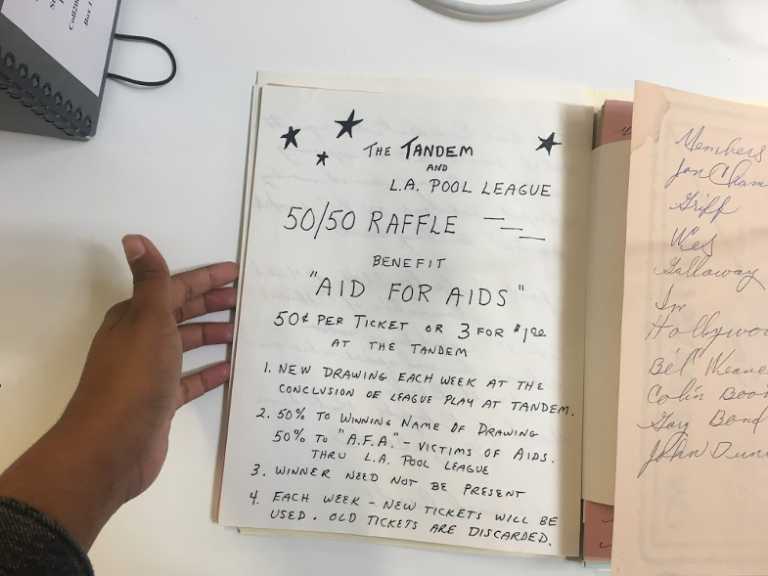 THE TANDEM
AND
L.A. POOL LEAGUE
50/50 RAFFLE
BENEFIT
"AID FOR AIDS"
50¢ PER TICKET OR 3 FOR $1.00
AT THE TANDEM
1. NEW DRAWING EACH WEEK AT THE
CONCLUSION OF LEAGUE PLAY AT TANDEM.
2. 50% TO WINNING NAME OF DRAWING
50% TO "A.F.A." - VICTIMS OF AIDS.
THRU L.A. POOL LEAGUE
3. WINNER NEED NOT BE PRESENT
4. EACH WEEK - NEW TICKETS WILL BE
USED. OLD TICKETS ARE DISCARDED.
Members
Jon Cham
Griff
Wes
Galloway
In
Hollywoo
Bel Weave
Colin Boo
Gary Bond
John Dun